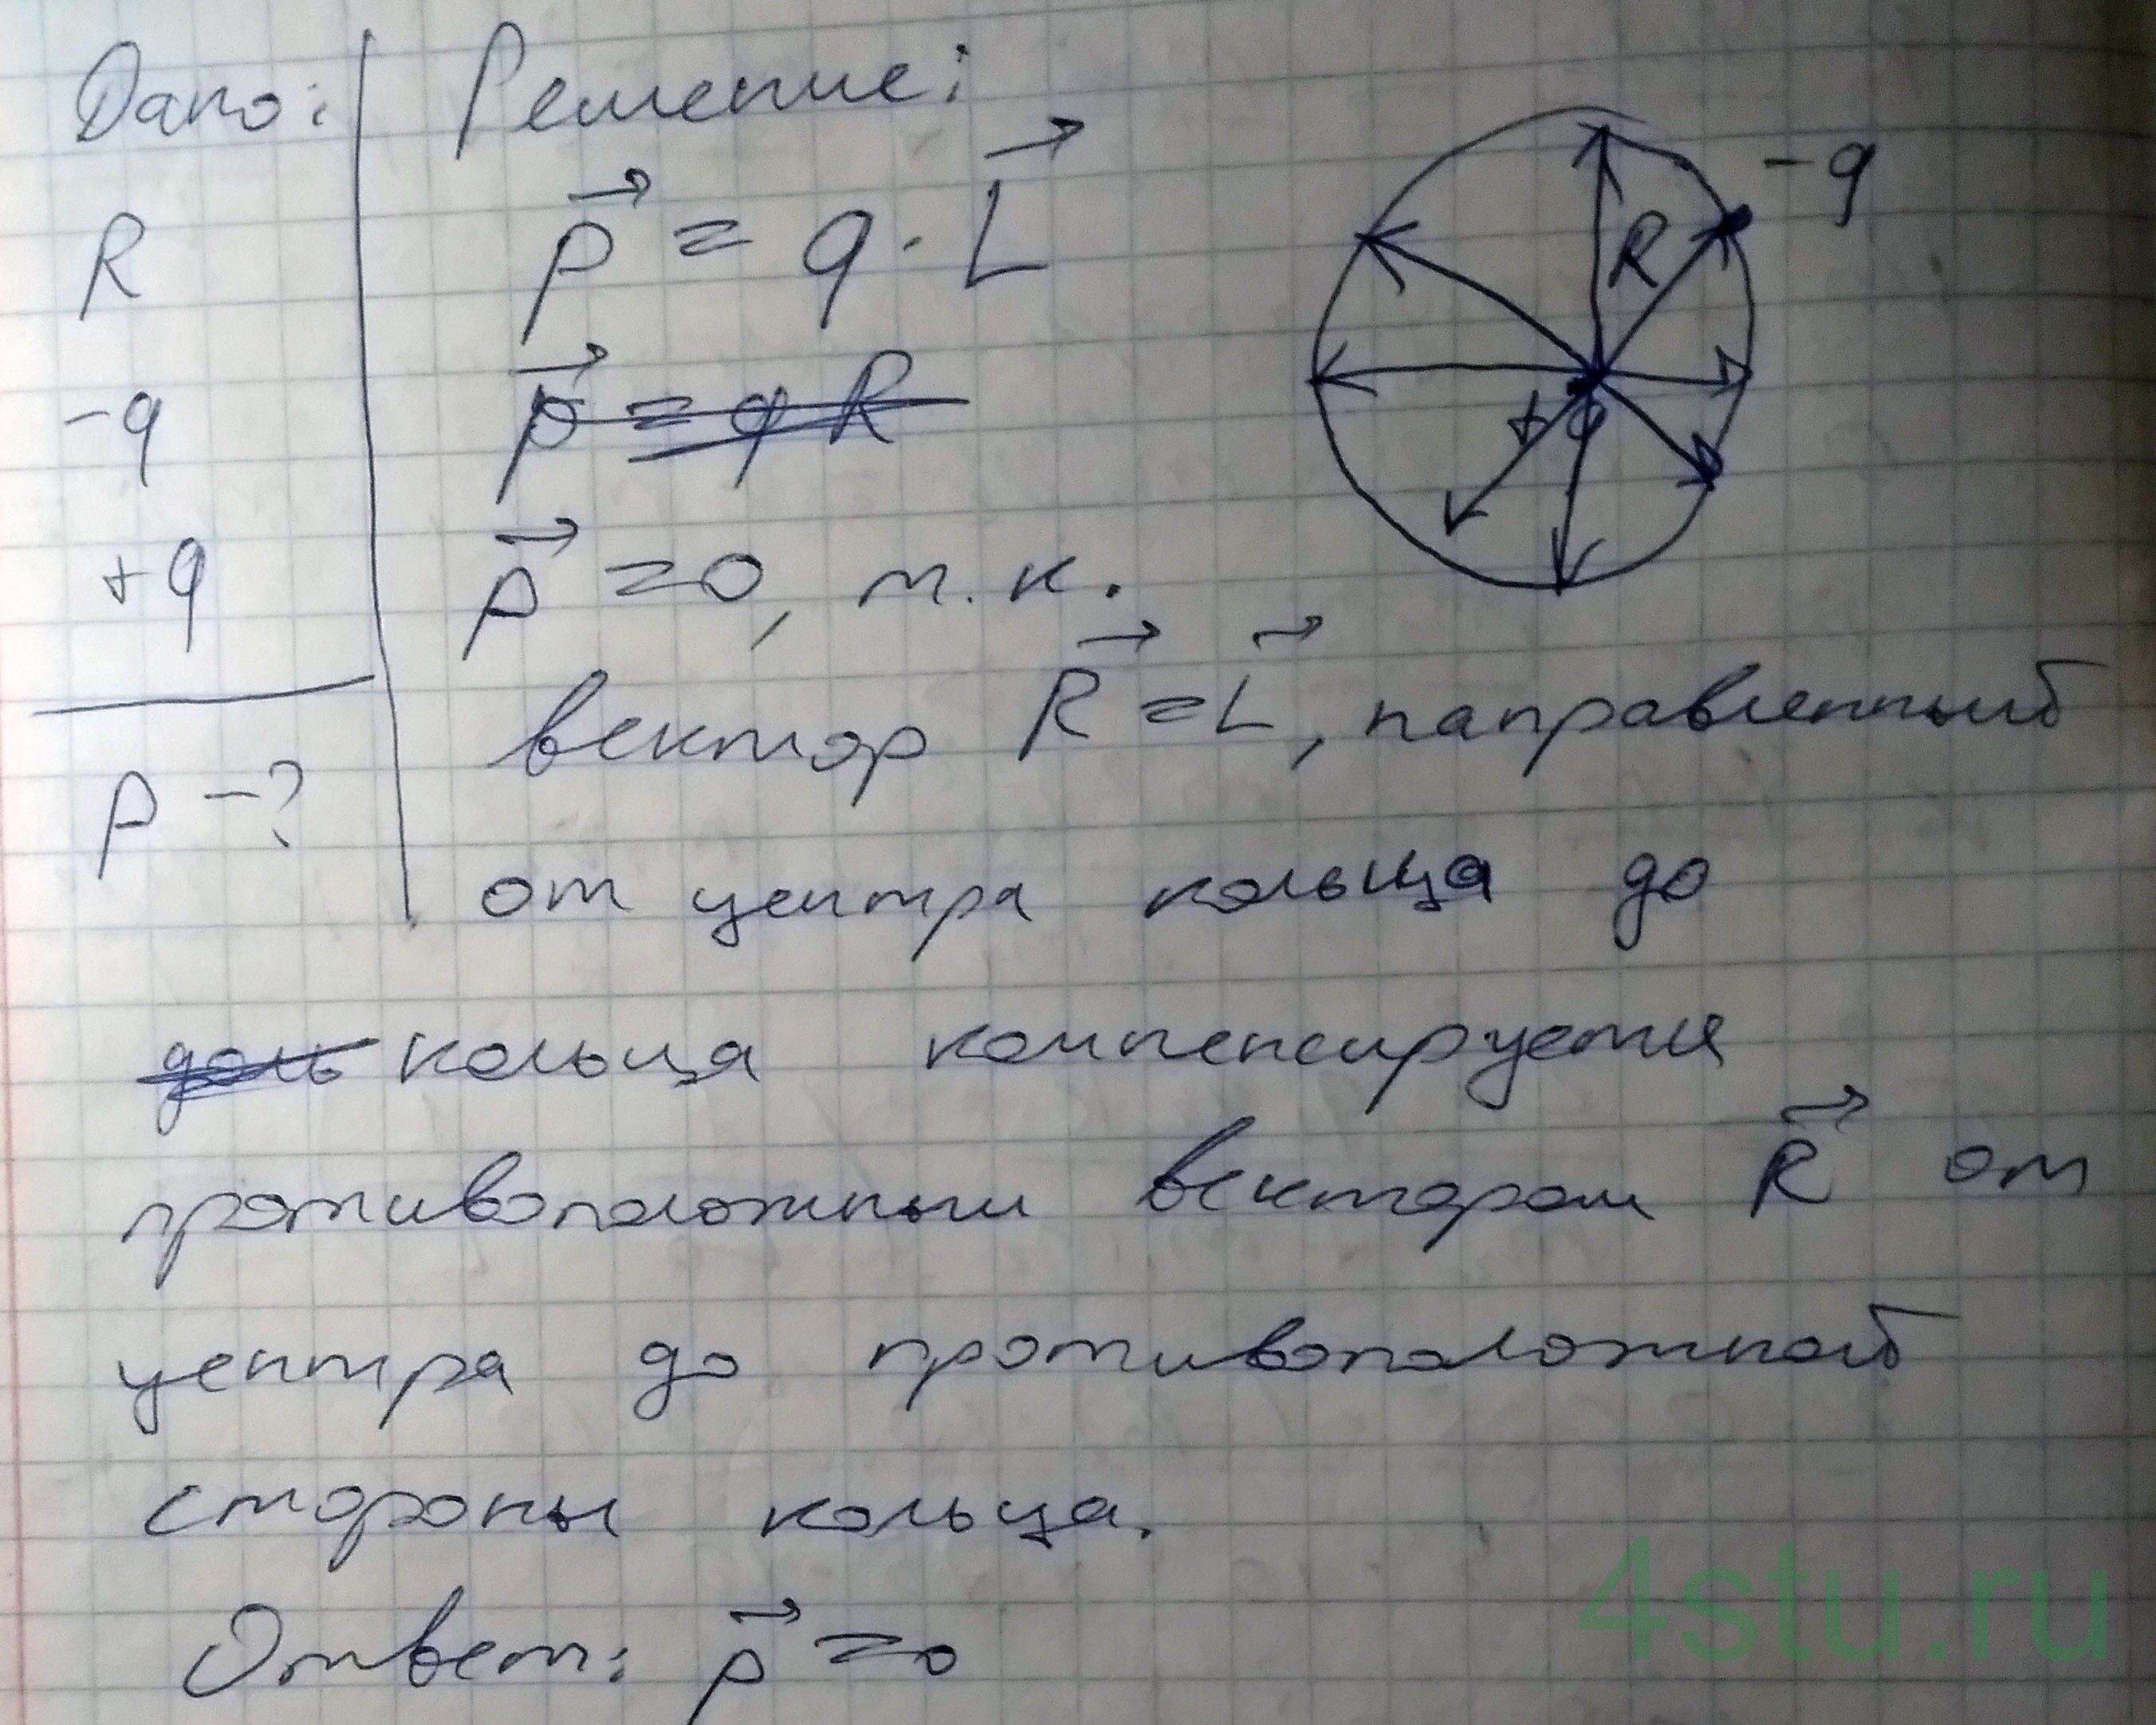 Дано:
R
-q
+q
p - ?
Решение:
p⃗ = q · L⃗
p⃗ = qR
p⃗ = 0, т.к.
вектор R⃗ = L⃗, направленный
от центра кольца до
кольца компенсируется
противоположным вектором R⃗ от
центра до противоположной
стороны кольца.
Ответ: p⃗ = 0
-q
R
+q
4stu.ru